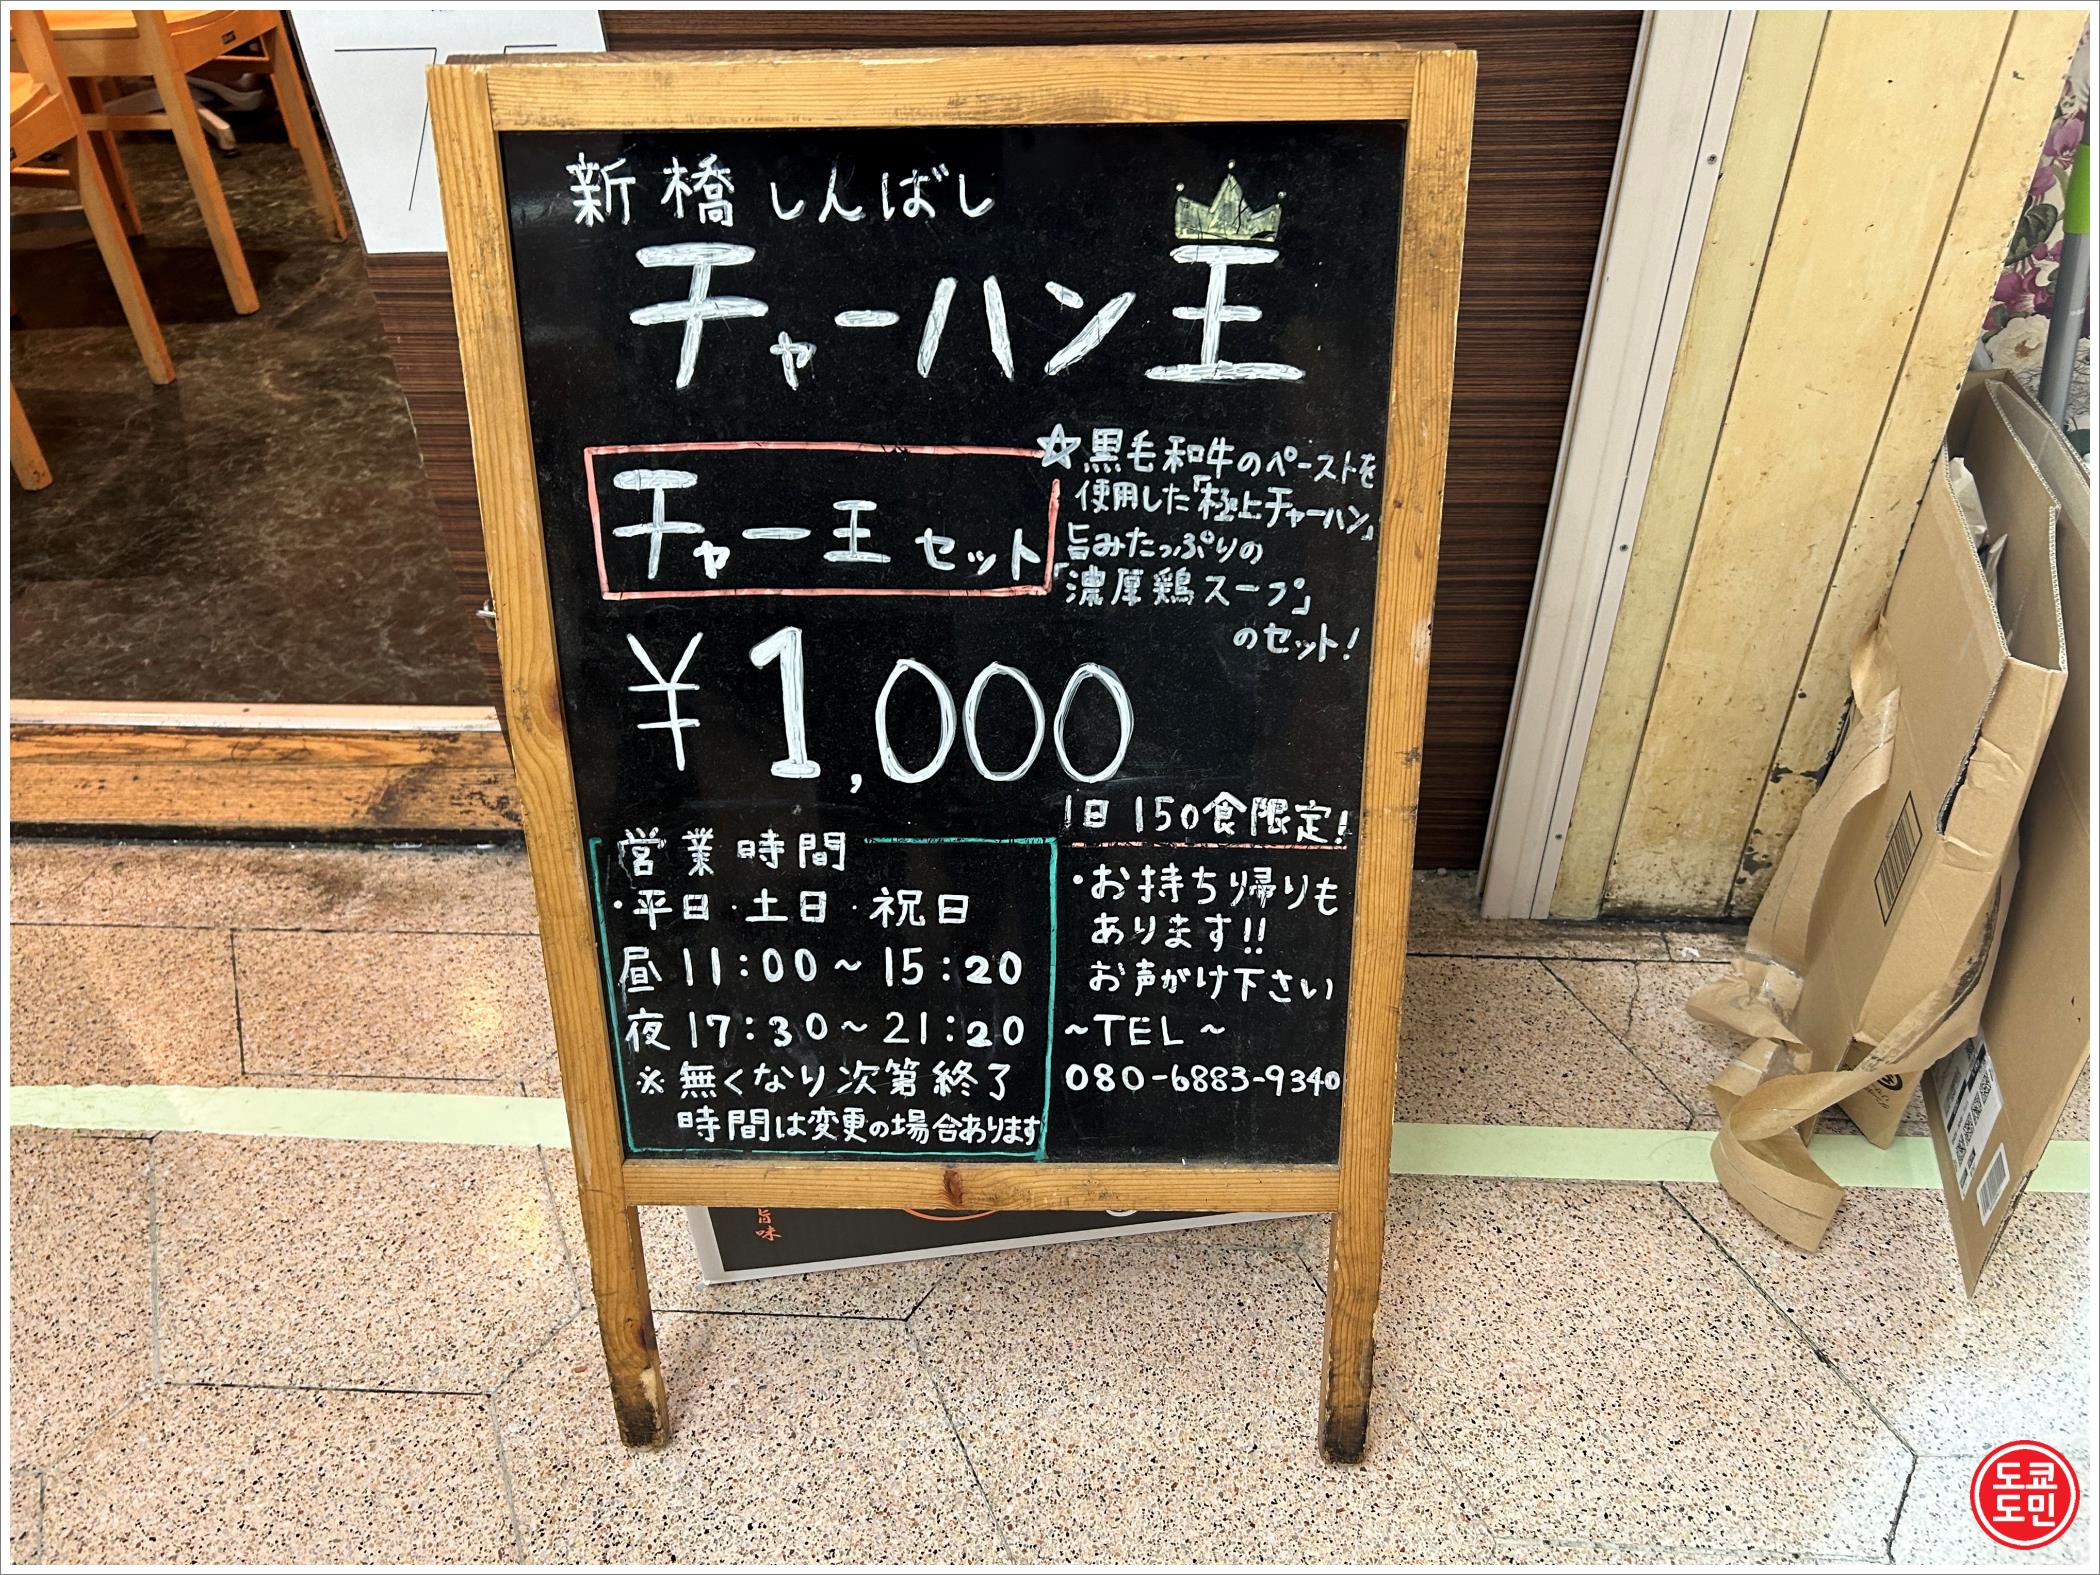 新橋 しんばし
チャーハン王
チャー王 セット
☆黒毛和牛のペーストを
使用した「極上チャーハン」
旨みたっぷりの
「濃厚鶏スープ」
のセット!
¥1,000
1日 150食限定!
営業時間
・平日・土日・祝日
昼 11:00～15:20
夜 17:30～21:20
※無くなり次第終了
時間は変更の場合あります
・お持ち帰りも
あります!!
お声がけ下さい
～TEL～
080-6883-9340
味
도쿄
도민